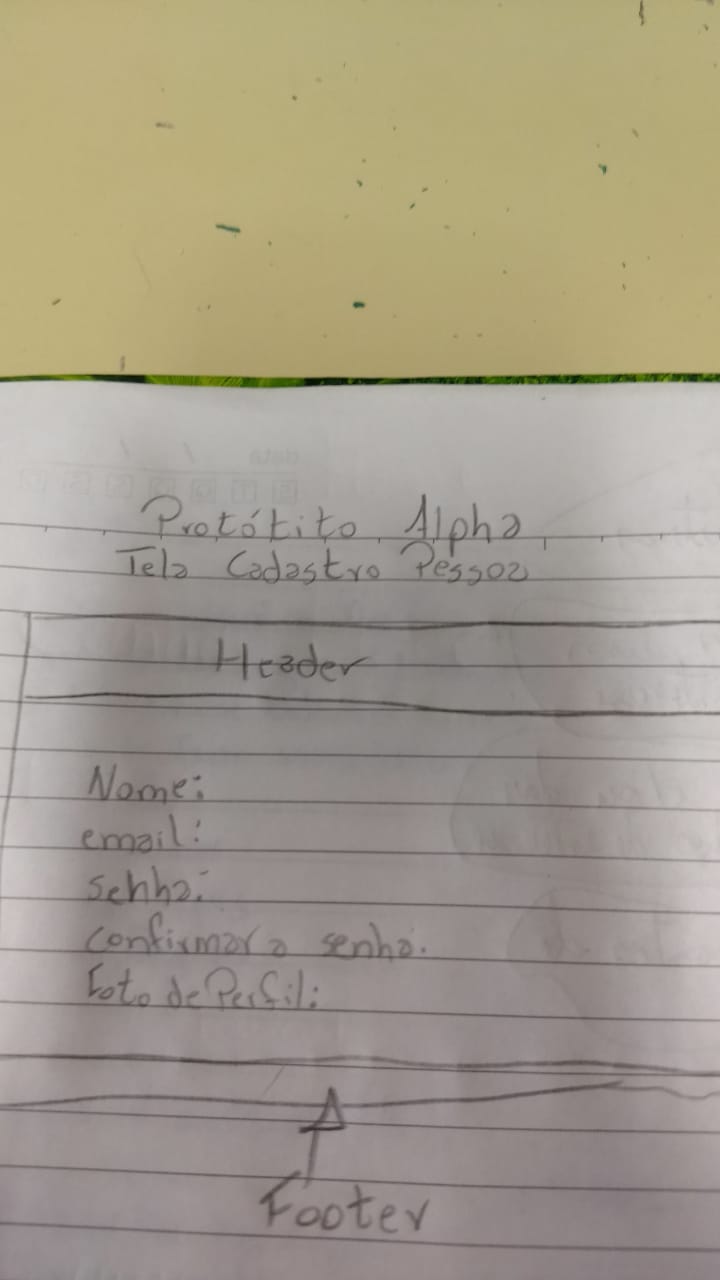 Protótito Alpha
Tela Cadastro Pessoa
Header
Nome:
email:
Senha:
Confirmar a senha.
Foto de Perfil:
Footer